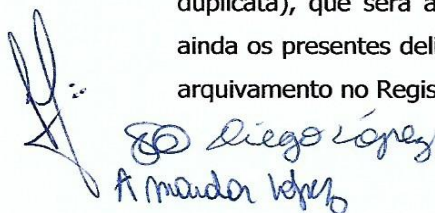 duplicata), que será a
ainda os presentes deli
arquivamento no Regis
Diego López
Amandor López